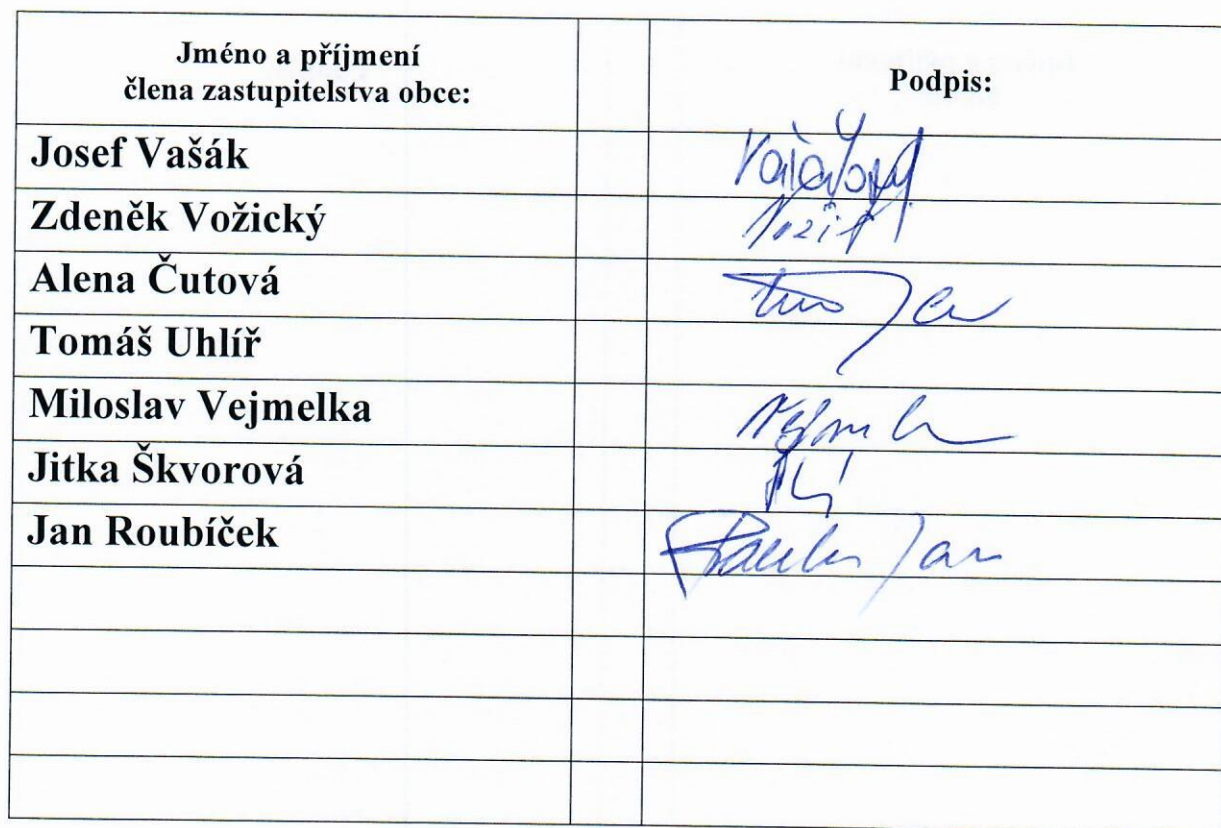 Jméno a příjmení
člena zastupitelstva obce:
Podpis:
Josef Vašák
Zdeněk Vožický
Alena Čutová
Tomáš Uhlíř
Miloslav Vejmelka
Jitka Škvorová
Jan Roubíček
Jan